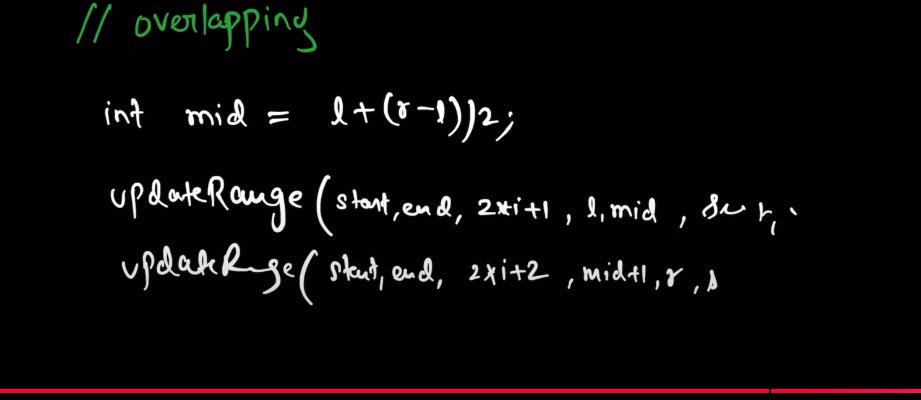 // overlapping
int mid = l+(r-l)/2;
updateRange(start,end, 2*i+1, l,mid,
updateRange(start,end, 2*i+2, mid+1,r,s